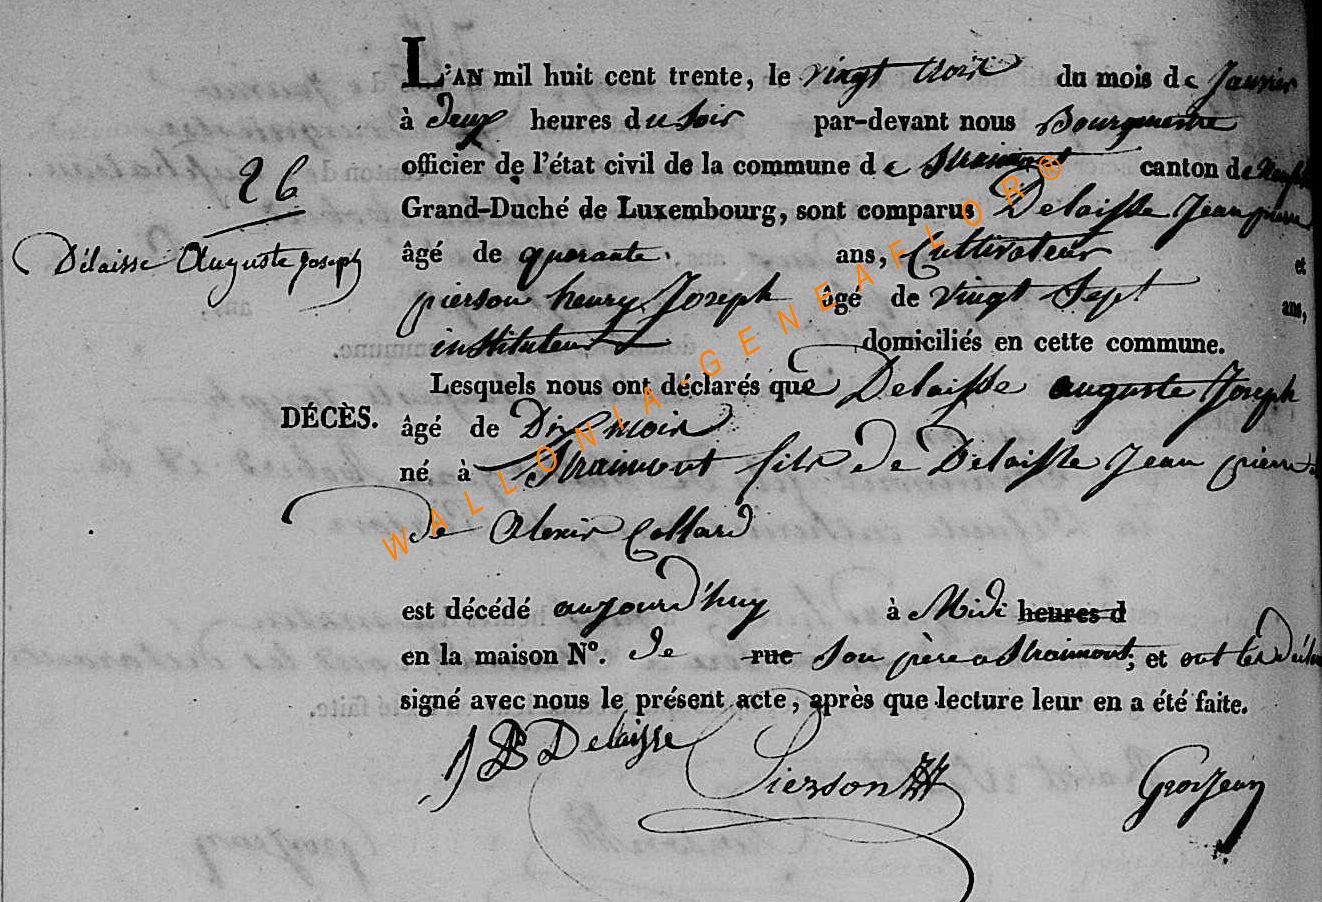 L'AN mil huit cent trente, le vingt trois du mois de Janvier
à deux heures du soir par-devant nous Bourguemestre
officier de l'état civil de la commune de Straimont canton de
26
Grand-Duché de Luxembourg, sont comparus Delaisse Jean pierre
Délaisse Auguste Joseph
âgé de quarante ans, Cultivateur et
pierson henry Joseph âgé de vingt Sept ans,
instituteur domiciliés en cette commune.
Lesquels nous ont déclarés que Delaisse auguste Joseph
DÉCÈS.
âgé de Dix mois
né à Straimont fils de Delaisse Jean pierre
de Alexis Collard
est décédé aujourd'huy à Midi heures d
en la maison Nº. de rue Son père a Straimont; et ont les
signé avec nous le présent acte, après que lecture leur en a été faite.
Delaisse Pierson Grosjean
WALLONIA-GENEAFLOR®